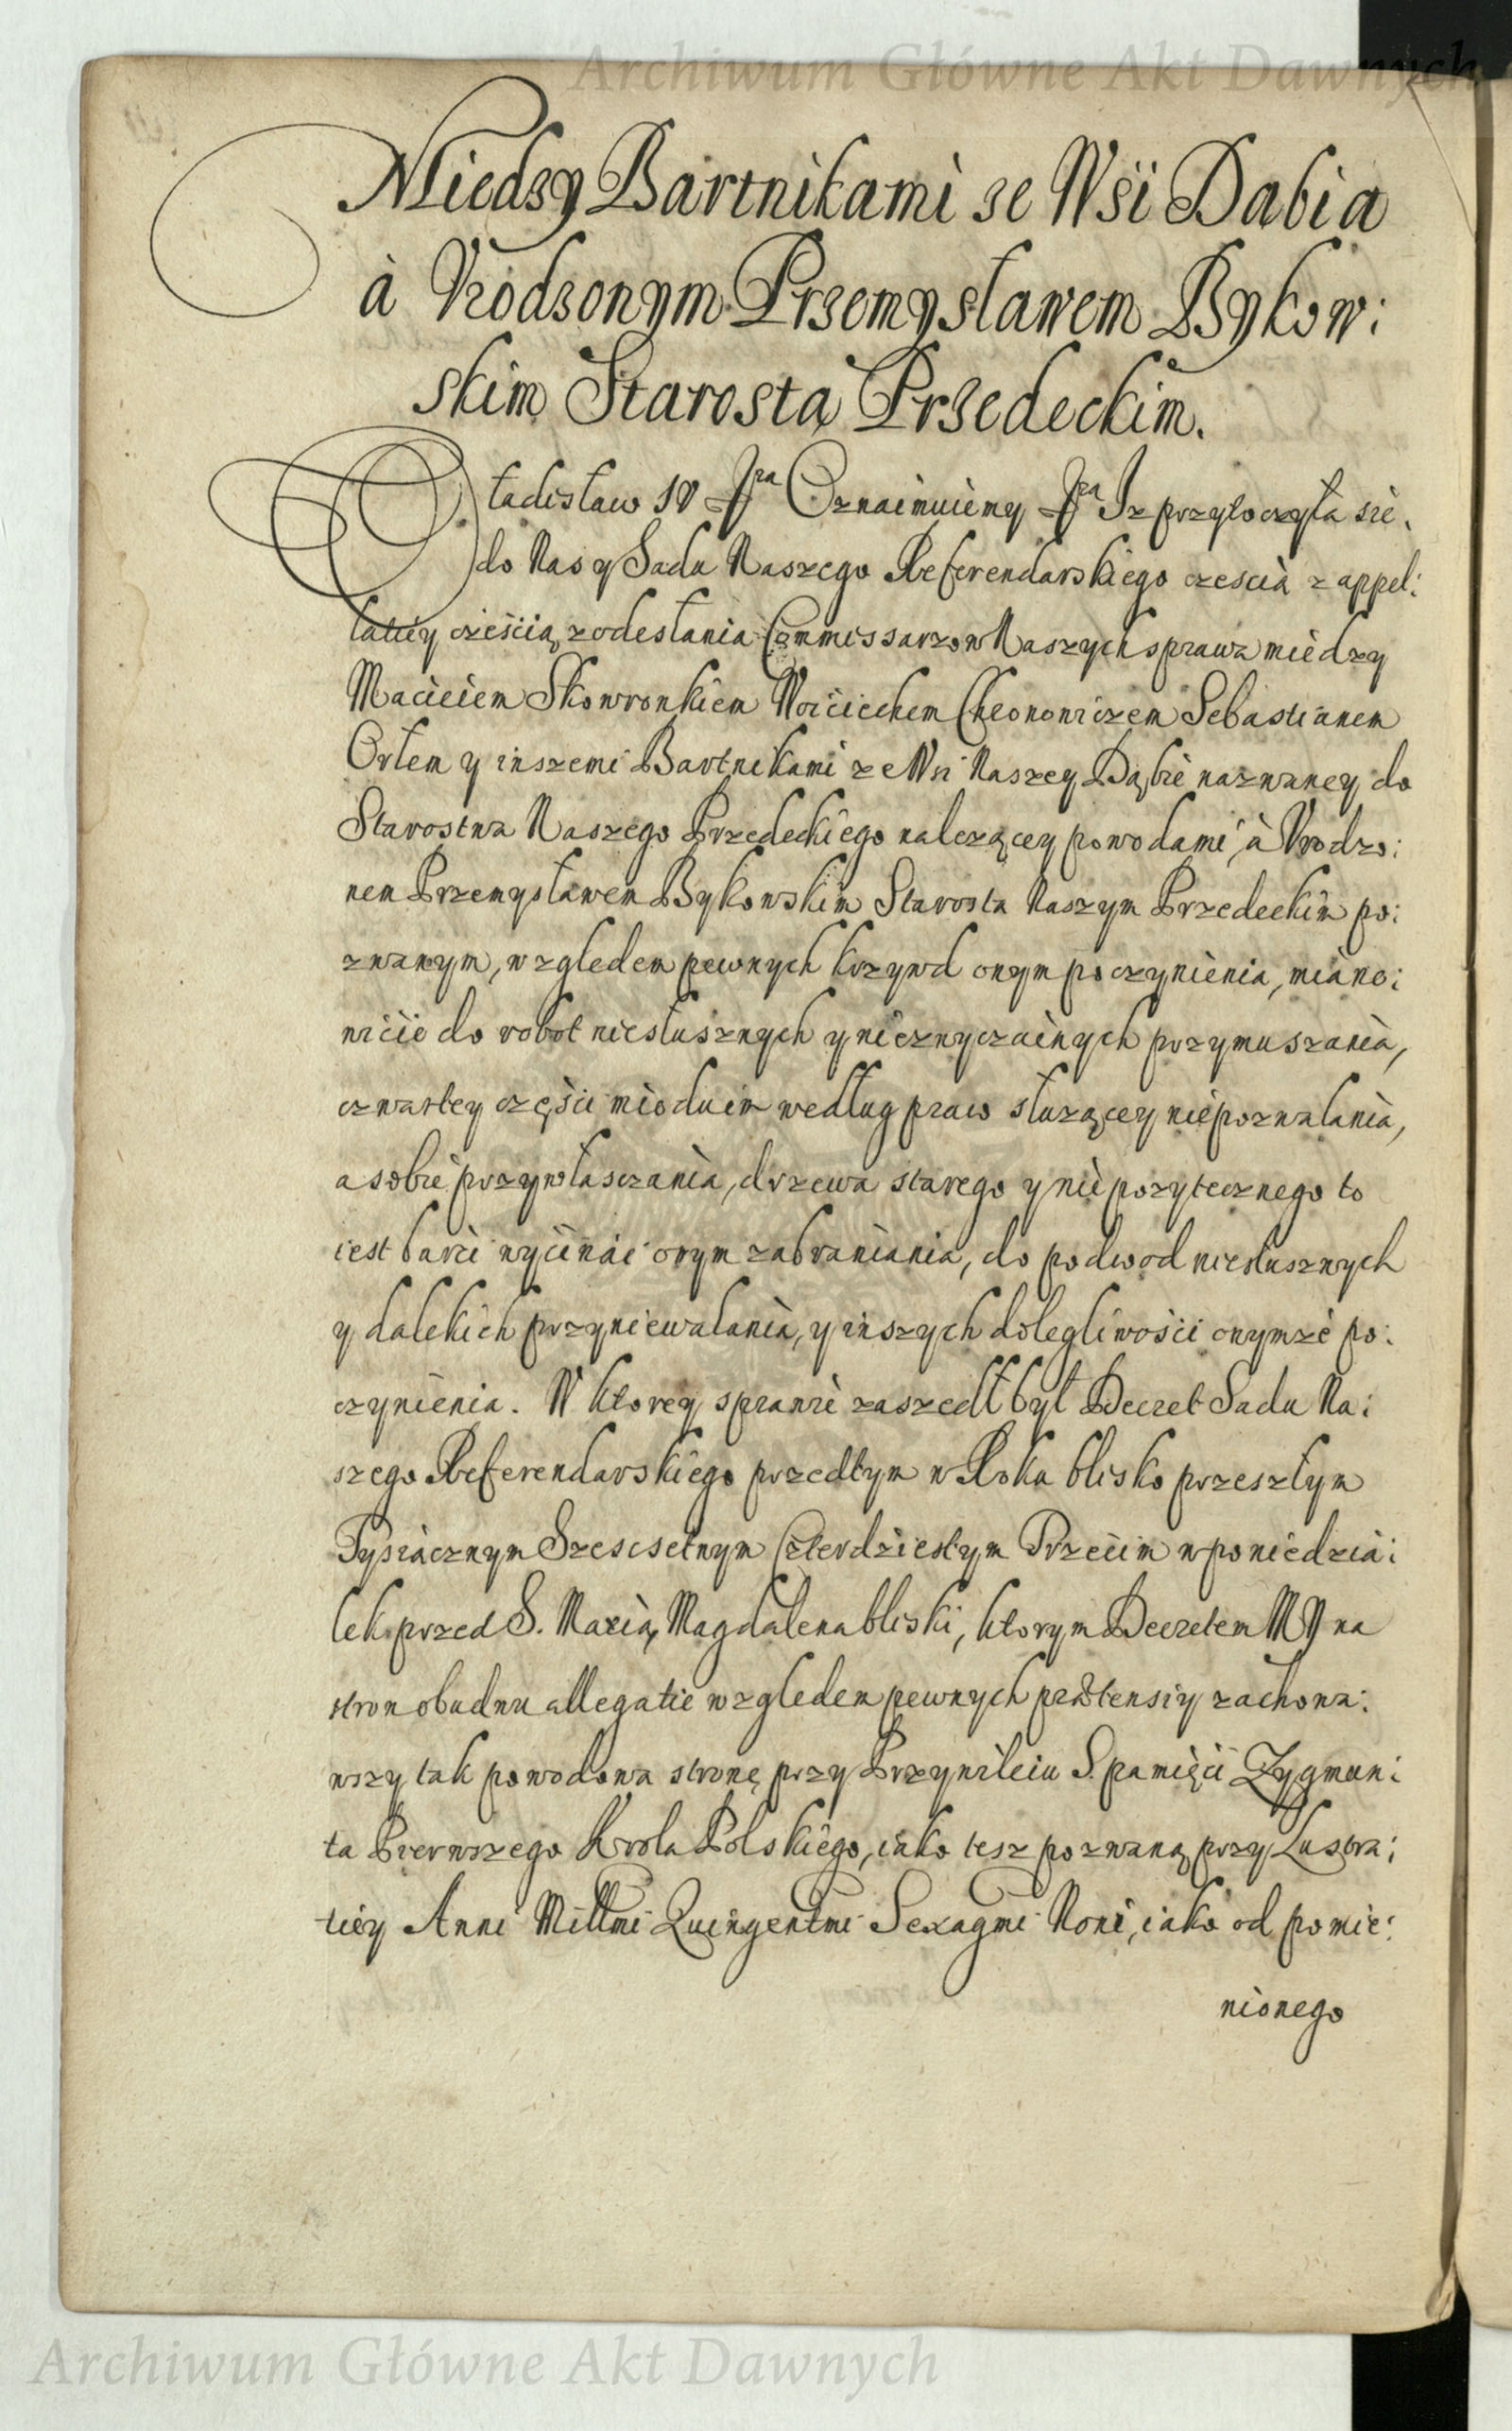 Archiwum Główne Akt Dawnych
Miedzy Bartnikami ze Wsi Dąbia
à Vrodzonym Przemysławem Bykow:
skim Starostą Przedeckim.
Władisław IV Oznaimuiemy Iz przytoczyła się
do Nas y Sadu Naszego Referendarskiego czescią z appel:
latiey cześcią z odesłania Commissarzow Naszych sprawa między
Macieiem Skowronkiem Woiciechem Sebastianem
Orłem y inszemi Bartnikami ze Wsi Naszey Dąbie nazwaney do
Starostwa Naszego Przedeckiego nalezącey powodami, à Vrodzo:
nem Przemysławem Bykowskim Starosta Naszym Przedeckim po:
zwanym, względem pewnych krzywd onym poczynienia, miano:
wicie do robot niesłusznych y niezwyczainych przymuszania,
czwartey części miodu im według praw słuzącey niepozwalania,
a sobie przywłasczania, drzewa starego y nie pozytecznego to
iest barci wycinać onym zabraniania, do podwod niesłusznych
y dalekich przyniewalania, y inszych dolegliwości onymze po:
czynienia. W ktorey sprawie zaszedł był Decret Sadu Na:
szego Referendarskiego przedtym w Roku blisko przeszłym
Tysiącznym Szescsetnym Czterdziestym Trzecim w poniedzia:
łek przed S. Marią Magdalena bliski, ktorym Decretem MY na
stron obudwu allegatie względem pewnych prætensiy zachowa:
wszy tak powodowa stronę przy Przywileiu S. pamięci Zygmun:
ta Pierwszego Krola Polskiego, iako tesz pozwaną przy Lustra:
tiey Anni Millmi Quingentmi Sexagmi Noni, iako od pomie:
nionego
Archiwum Główne Akt Dawnych